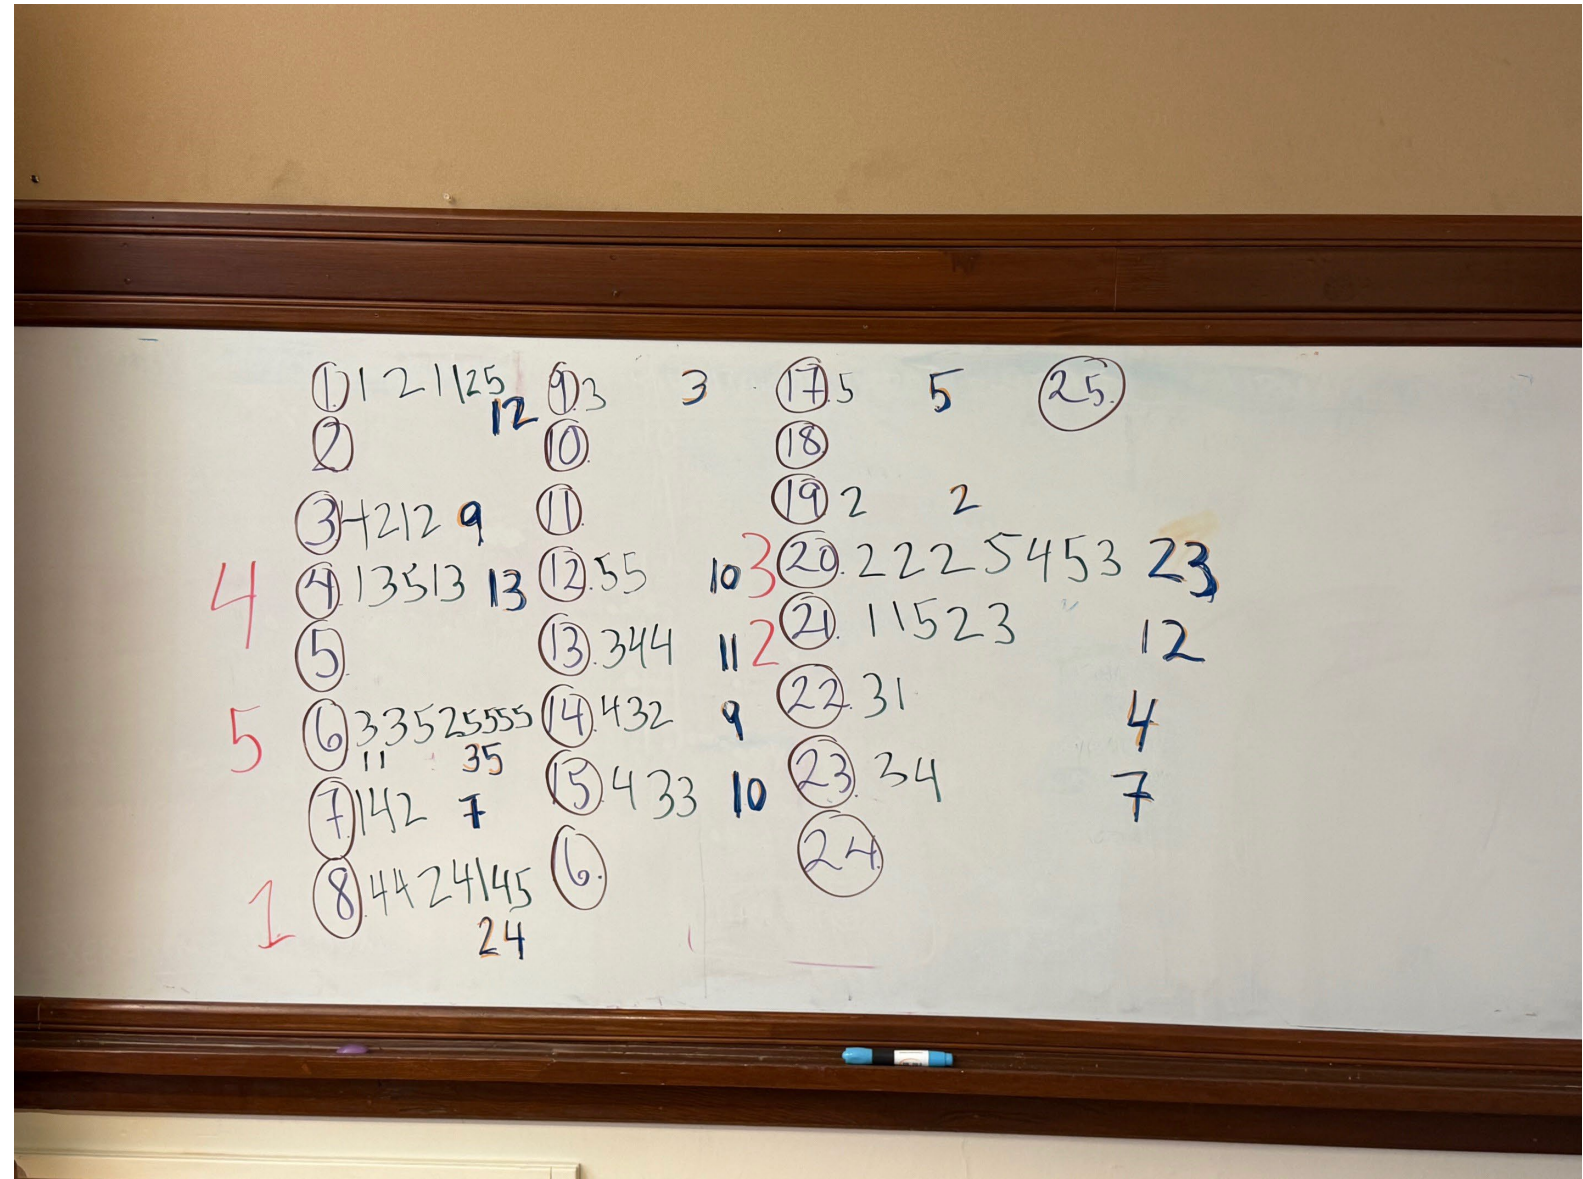 1. 1 2 1 1 2 5 12
2
3 4212 9
4 4. 13513 13
5.
5 6 33525555 35
11
7. 142 7
1 8. 4424145 24
9. 3 3
10.
11.
12. 55 10
13. 344 11
14. 432 9
15. 433 10
6.
17. 5 5
18
19 2 2
3 20. 2225453 23
2 21. 11523 12
22. 31 4
23. 34 7
24.
25.